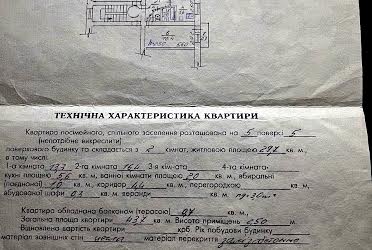 ТЕХНІЧНА ХАРАКТЕРИСТИКА КВАРТИРИ
Квартира посімейного, спільного заселення розташована на 5 поверсі 5
(непотрібне викреслити)
поверхового будинку та складається з 2 кімнат, житловою площею 29,7 кв. м,
в тому числі:
1-а кімната 13,3 2-га кімната 16,4 3-я кім-ата 4-та кімната-
кухні площею 5,6 кв. м, ванної кімнати площею 2,0 кв. м, вбиральні
(надвірної) 1,0 кв. м, коридор 4,4 кв. м, перегородкою кв. м,
вбудованої шафи 0,3 кв. м, веранди кв. м,
Квартира обладнана балконом (терасою) 0,7 кв. м,
Загальна площа квартири 43,7 кв. м. Висота приміщень 2,50 м.
Визначено вартість квартири крб. Рік побудови будинку
Матеріал зовнішніх стін цегла матеріал перекриття